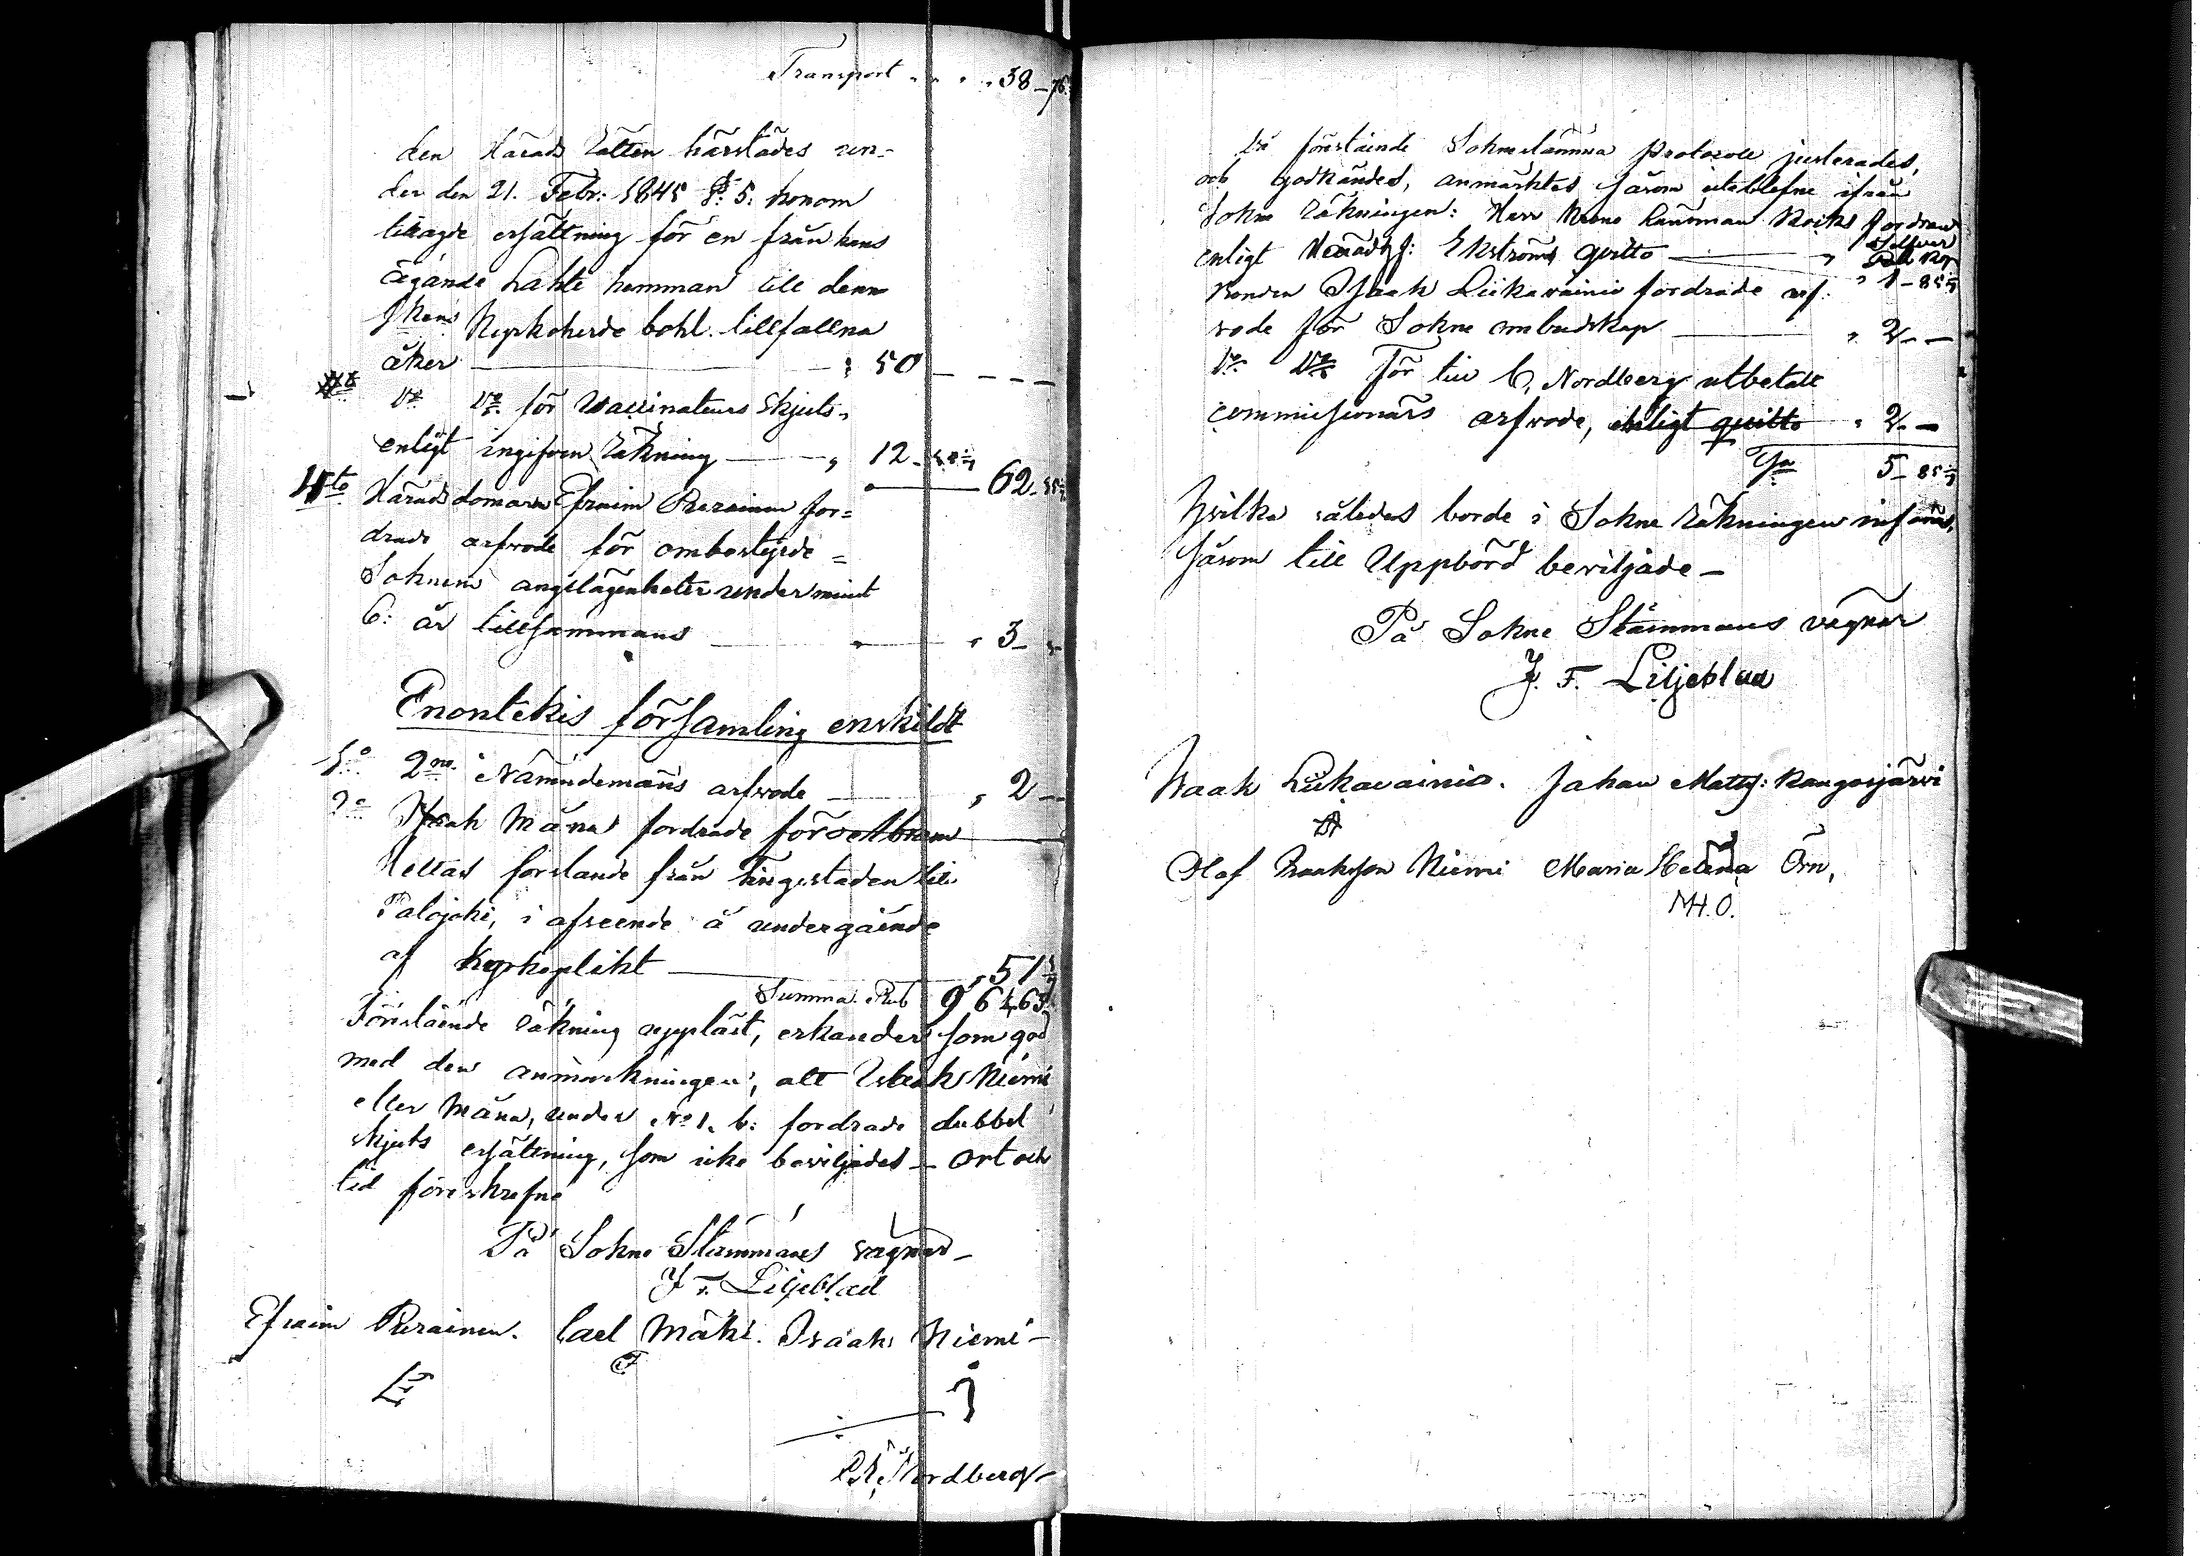 Transport " " " 38 - 76
den Härads Rätten härstädes un-
der den 21. Febr: 1845 §: 5: honom
tillagde ersättning för en från hans
ägande Lahti hemman till denne
Kyrkoherde bohl. tillfallna
åker " 50 - - - -
Do Do för Vaccinateurs skjuts,
enligt ingifven räkning " 12
62
4to Härads domaren Efraim Peerainen for=
drade arfvode för ombestyrde =
Soknens angelägenheter under minst
6: år tillsammans " 3 -
Enontekis församling enskildt
1o 2ne Nämndemäns arfvode " 2 -
2o Isaak Mäna fordrade för
forslande från Tingstaden till
Palojoki, i afseende å undergående
af Kyrkoplikt " 51
Summa Rub
Förestående räkning uppläst, erkändes som god
med den anmärkningen, att Isaak Niemi
eller Mäna, under No 1. b: fordrade dubbel
skjuts ersättning, som icke beviljades - Ort och
tid föreskrefne
På Sokne Stämmans vägnar -
J F. Liljeblad
Efraim Peerainen. Carl Mäki. Isaak Niemi -
Nordberg
Då förestående Sokne stämma Protocoll justerades,
och godkändes, anmärktes såsom uteblefne ifrån
Sokne räkningen: Herr Krono Länsman Koiks fordran
enligt Ekströms qvitto - " Silfver
Bonden Isaak Liikavainio fordrade arf- " 1 - 85
vode för Sokne ombudskap " 2 - -
Do Do för till C. Nordberg utbetalt
commissionärs arfvode, enligt qvitto " 2 - -
Sa 5 - 85
hvilka således borde i Sokne räkningen införas,
såsom till Uppbörd beviljade -
På Sokne Stämmans vägnar
J. F. Liljeblad
Isaak Liikavainio. Johan Matts: Kangosjärvi
Olof Isaksson Niemi Maria Helena Örn,
M.H.O.